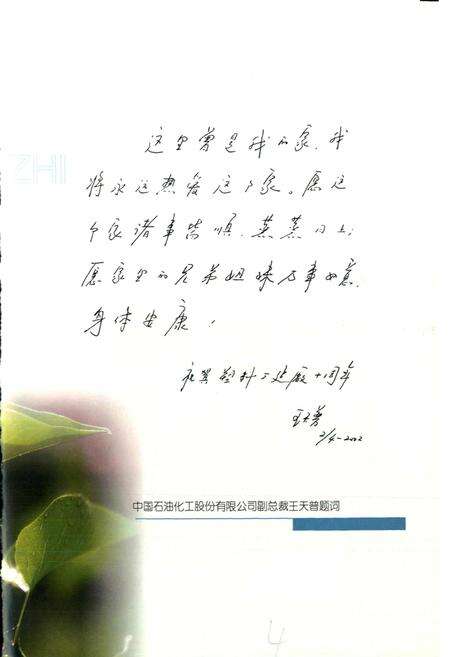 ZHI
这里曾是我的家，我
将永远热爱这个家。愿这
个家诸事皆顺，蒸蒸日上；
愿家里的兄弟姐妹万事如意，
身体安康！
祝贺塑料厂建厂十周年
王天普
2/4-2002
中国石油化工股份有限公司副总裁王天普题词
4